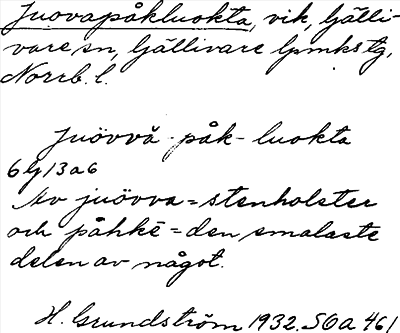 Juovapåkluokta, vik, Gälli-
vare sn, Gällivare lpmkstg,
Norrb. l.
juövvǎ - påk - luokta
6g13a6
Av juövva = stenholster
och påhkē = den smalaste
delen av något.
H. Grundström 1932. SOa 461